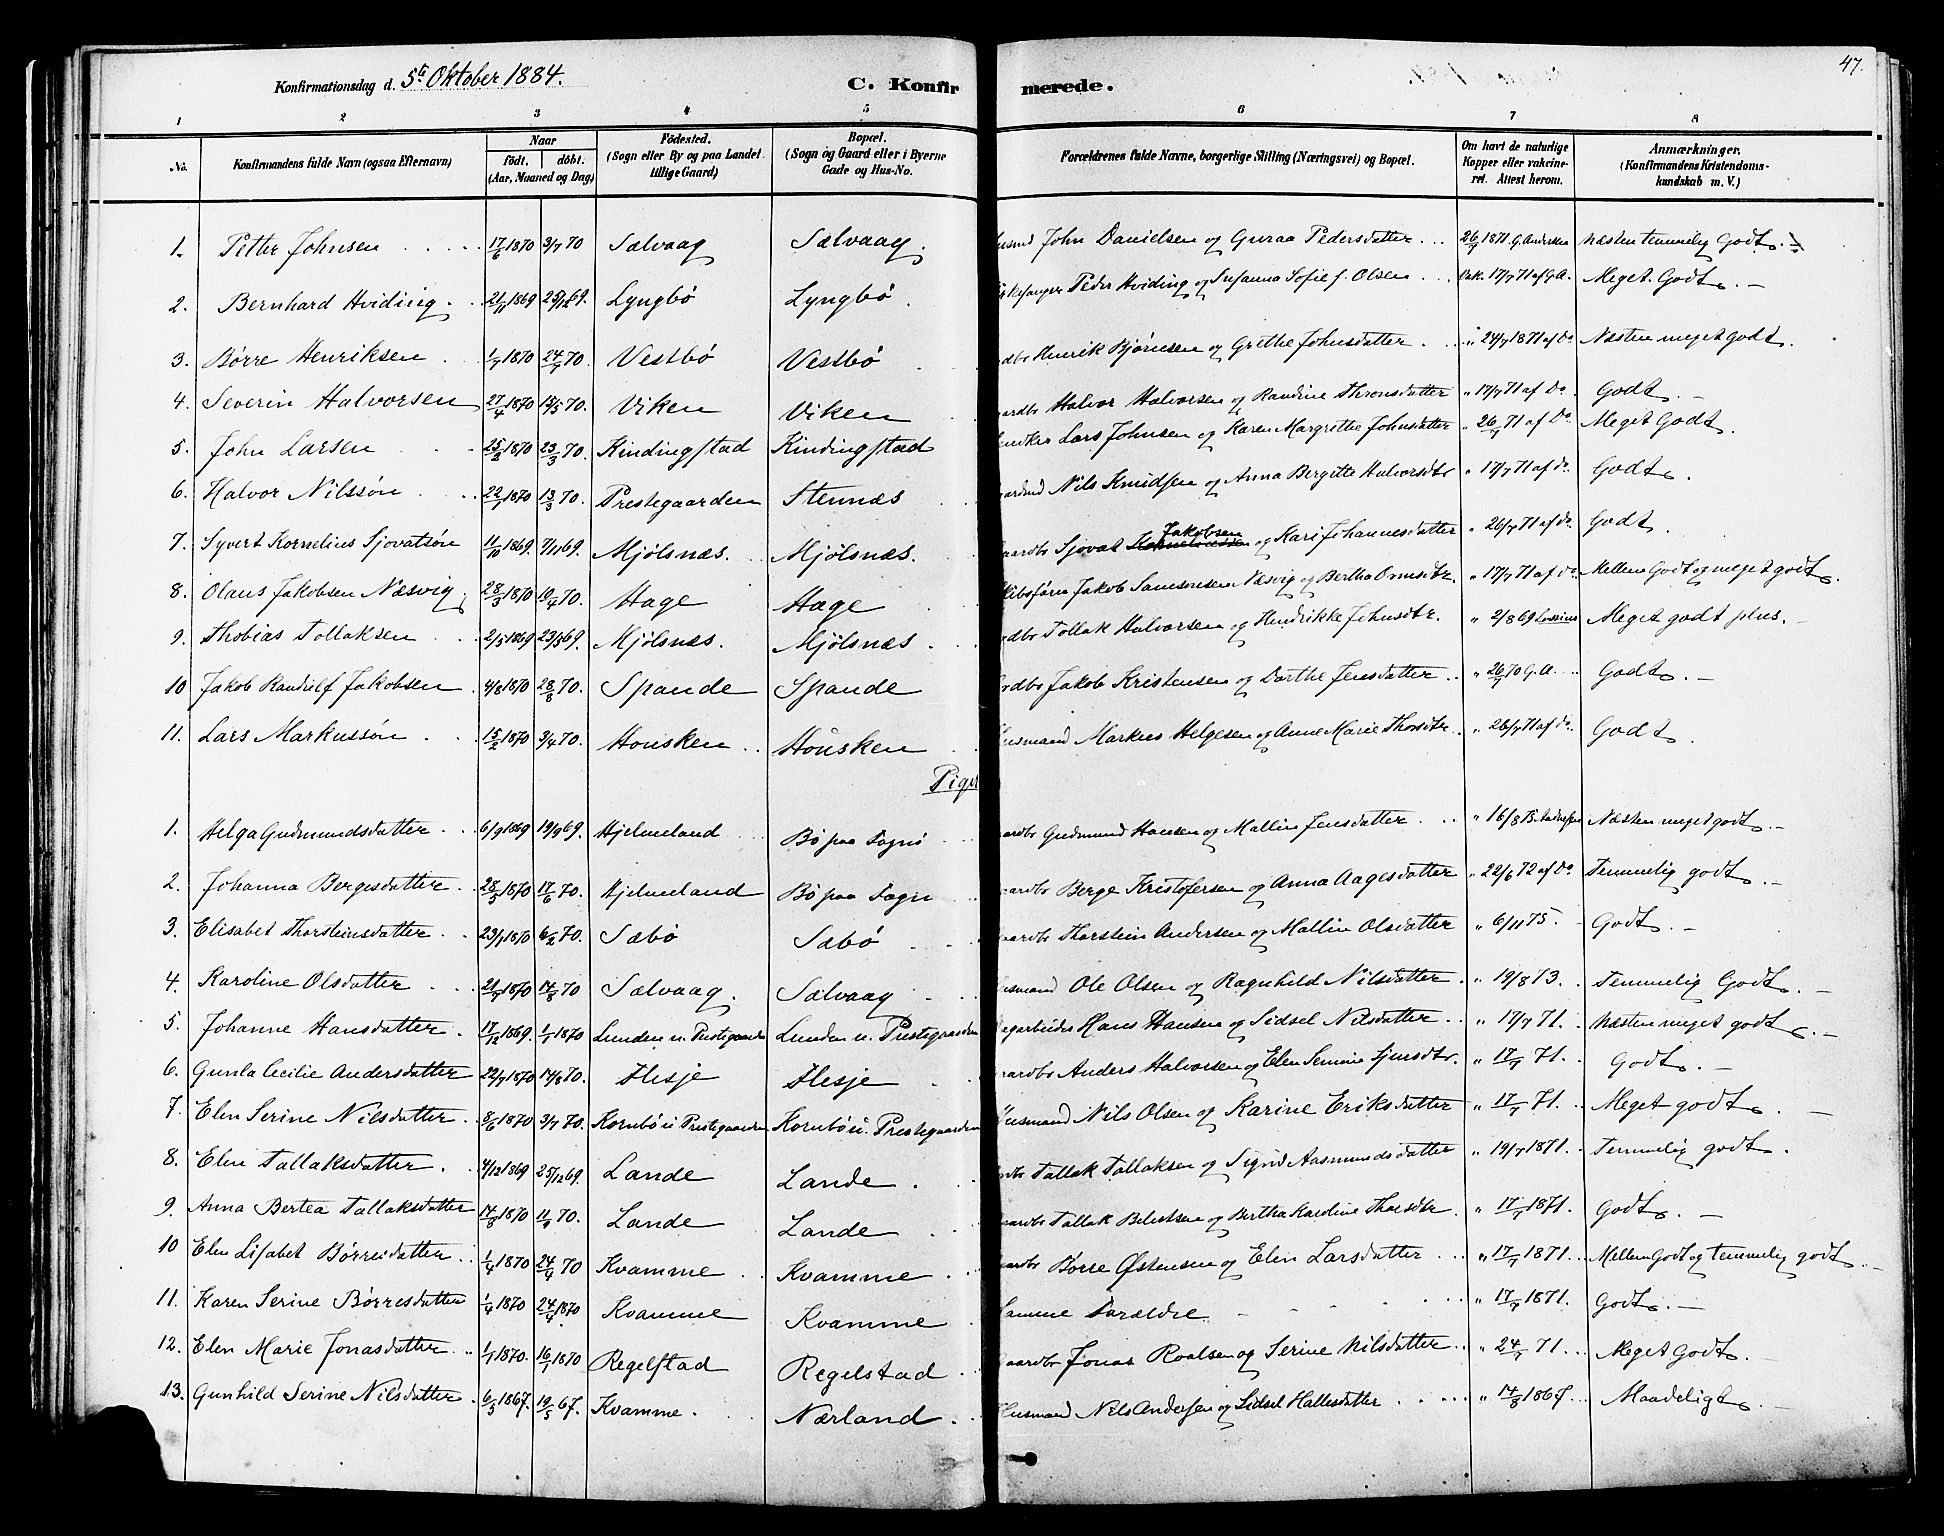 47.
Konfirmationsdag d. 5te Oktober 1884.
C. Konfirmerede.
1 2 3 4 5 6 7 8
No. Konfirmandens fulde Navn (ogsaa Efternavn) Naar født, døbt. (Aar, Maaned og Dag) Fødested. (Sogn eller By og paa Landet tillige Gaard) Bopæl. (Sogn og Gaard eller i Byerne Gade og Hus-No. Forældrenes fulde Navne, borgerlige Stilling (Næringsvei) og Bopæl. Om havt de naturlige Kopper eller vakcineret. Attest herom. Anmærkninger. (Konfirmandens Kristendomskundskab m. V.)
1. Petter Johnsen 17/6 1870 3/7 70 Sælvaag Sælvaag. John Danielsen og Guraa Pedersdatter 26/7 1871 G. Andersen Næsten temmelig Godt.
2. Bernhard Hviding 21/11 1869 25/12 69. Lyngbø Lyngbø Peder Hviding og Susanna Sofie f. Olsen Vak. 17/7 71 af G.A. Meget Godt.
3. Børre Henriksen 1/7 1870 24/7 70. Vestbø Vestbø Henrik Bjørnsen og Grethe Johnsdatter " 24/7 1871 af Do Næsten meget godt.
4. Severin Halvorsen 27/4 1870 15/5 70. Viken Viken Halvor Halvorsen og Randine Thronsdatter " 17/7 71 af Do Godt.
5. John Larsen 25/2 1870 23/3 70. Kindingstad Kindingstad Lars Johnsen og Karen Margrethe Johnsdatter " 26/7 71 af Do Meget Godt.
6. Halvor Nilssøn 22/1 1870 13/3 70. Prestegaarden Stennæs Nils Knudsen og Anna Bergitte Halvorsdtr " 17/7 71 af do Godt.
7. Syvert Kornelius Sjovatsøn 11/10 1869 7/11 69. Mjølsnæs. Mjølsnæs. Sjovat Jakobsen og Kari Johannesdatter " 26/7 71 af do Godt.
8. Olaus Jakobsen Næsvig. 28/3 1870 19/4 70. Hage Hage Jakob Samsonsen Næsvig og Bertha Ormsdtr. " 17/7 71 af do. Mellem Godt og meget godt.
9. Thobias Tollaksen 2/5 1869 23/5 69. Mjølsnæs. Mjølsnæs Tollak Halvorsen og Hendrikke Johnsdtr. " 2/8 69 Meget godt plus.
10 Jakob Randulf Jakobsen 4/8 1870 28/8 70. Spande Spande Jakob Kristensen og Dorthe Jensdatter " 26/7 70 G.A. Godt.
11. Lars Markussøn 15/2 1870 3/4 70. Housken Housken Husmand Markus Helgesen og Anne Marie Thorsdtr " 26/7 71 af do Godt.
Piger
1. Helga Gudmundsdatter 6/9 1869 19/9 69. Hjelmeland Bø paa Fogn Gudmund Hansen og Mallin Jensdatter " 16/8 Næsten meget godt.
2. Johanna Bergesdatter 28/5 1870 17/6 70. Hjelmeland Bø paa Fogn Berge Kristofersen og Anna Aagesdatter " 22/6 72 af Do Temmelig godt.
3. Elisabet Thorsteinsdatter 23/1 1870 6/2 70. Sæbø Sæbø Thorstein Andersen og Mallin Olsdatter " 6/11 75. Godt.
4. Karoline Olsdatter 21/7 1870 14/8 70 Sælvaag. Sælvaag Husmand Ole Olsen og Ragnhild Nilsdatter " 19/8 73. Temmelig Godt.
5. Johanne Hansdatter 17/12 1869. 1/1 1870 Lunden u. Prestegaarden Lunden u. Prestegaarden Dagarbeider Hans Hansen og Sidsel Nilsdatter " 17/7 71. Næsten meget godt.
6. Gunla Cecilie Andersdatter 22/7 1870 14/8 70. Hesje Hesje Anders Halvorsen og Elen Semine Sjursdtr. " 17/7 71. Godt.
7. Elen Serine Nilsdatter 8/6 1870 3/7 70. Kornbø u Prestegaarden Kornbø u. Prestegaarden Husmand Nils Olsen og Karine Eriksdatter " 17/7 71. Meget godt.
8. Elen Tallaksdatter 4/12 1869 25/12 69. Lande Lande Tallak Tallaksen og Signe Aasmundsdatter " 19/7 1871. Temmelig godt.
9. Anna Bertea Tallaksdatter 14/8 1870 11/9 70. Lande Lande Tallak og Bertha Karoline Thorsdtr. " 17/7 1871. Godt.
10 Elen Lisabet Børresdatter 1/4 1870 24/4 70 Kvamme Kvamme Børre Østensen og Elen Larsdatter " 17/7 1871. Mellem Godt og temmelig godt
11. Karen Serine Børresdatter 1/4 1870 24/4 1870 Kvamme Kvamme Samme Forældre " 17/7 1871. Godt.
12. Elen Marie Jonasdatter 1/1 1870. 16/1 1870 Regelstad Regelstad Jonas Roalsen og Serine Nilsdatter " 24/7 71. Meget Godt.
13. Gunhild Serine Nilsdatter 6/5 1867. 19/5 67. Kvamme. Nærland Husmand Nils Andersen og Sidsel Hallesdatter " 14/8 1867. Maadeligt.